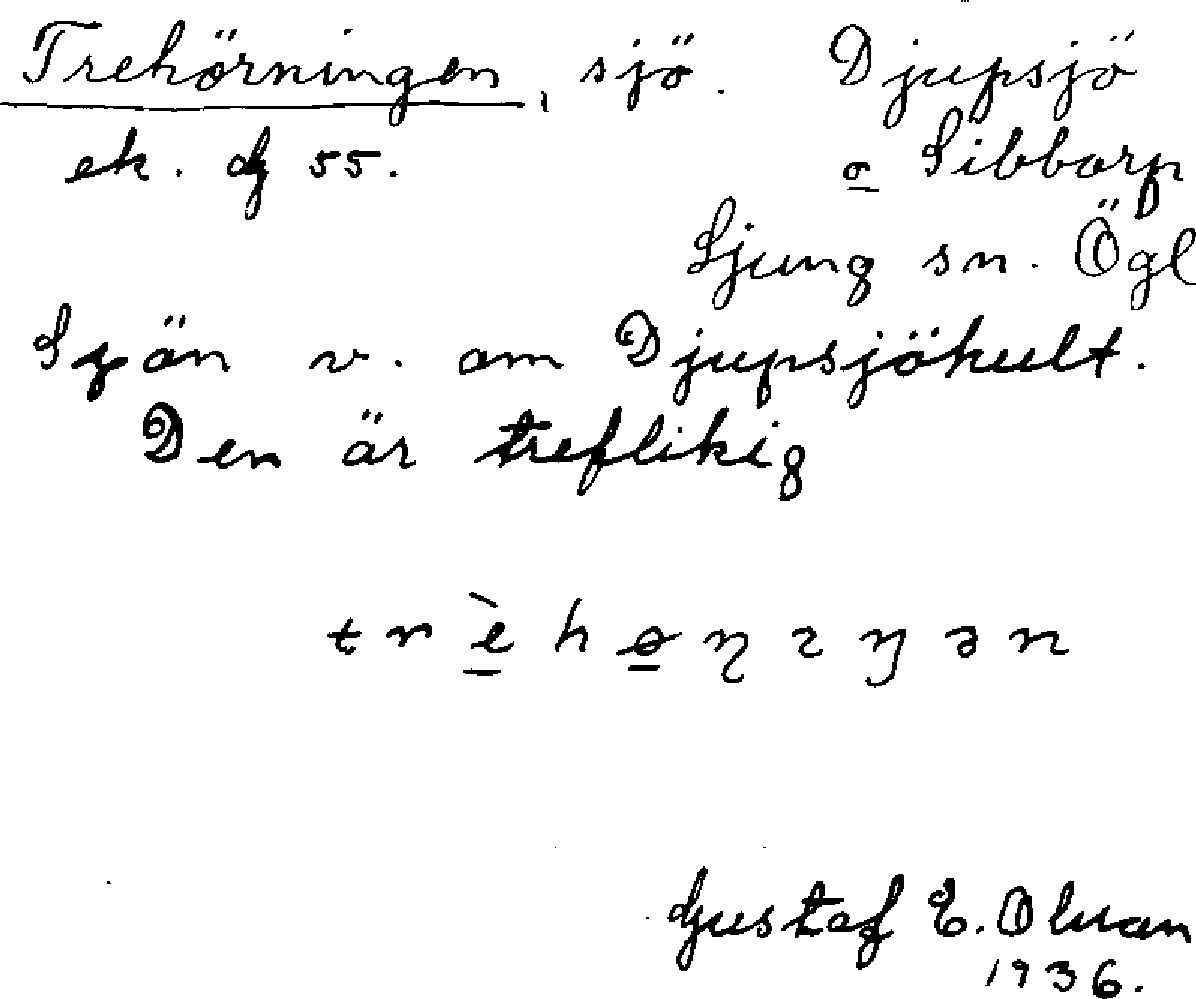 Trehörningen, sjö. Djupsjö
ek. dz 55. o Sibbarp
Ljung sn. Ögl
Sjön v. om Djupsjökult.
Den är treflikig
trèhøŋɪŋən
Gustaf E. Olvan
1936.